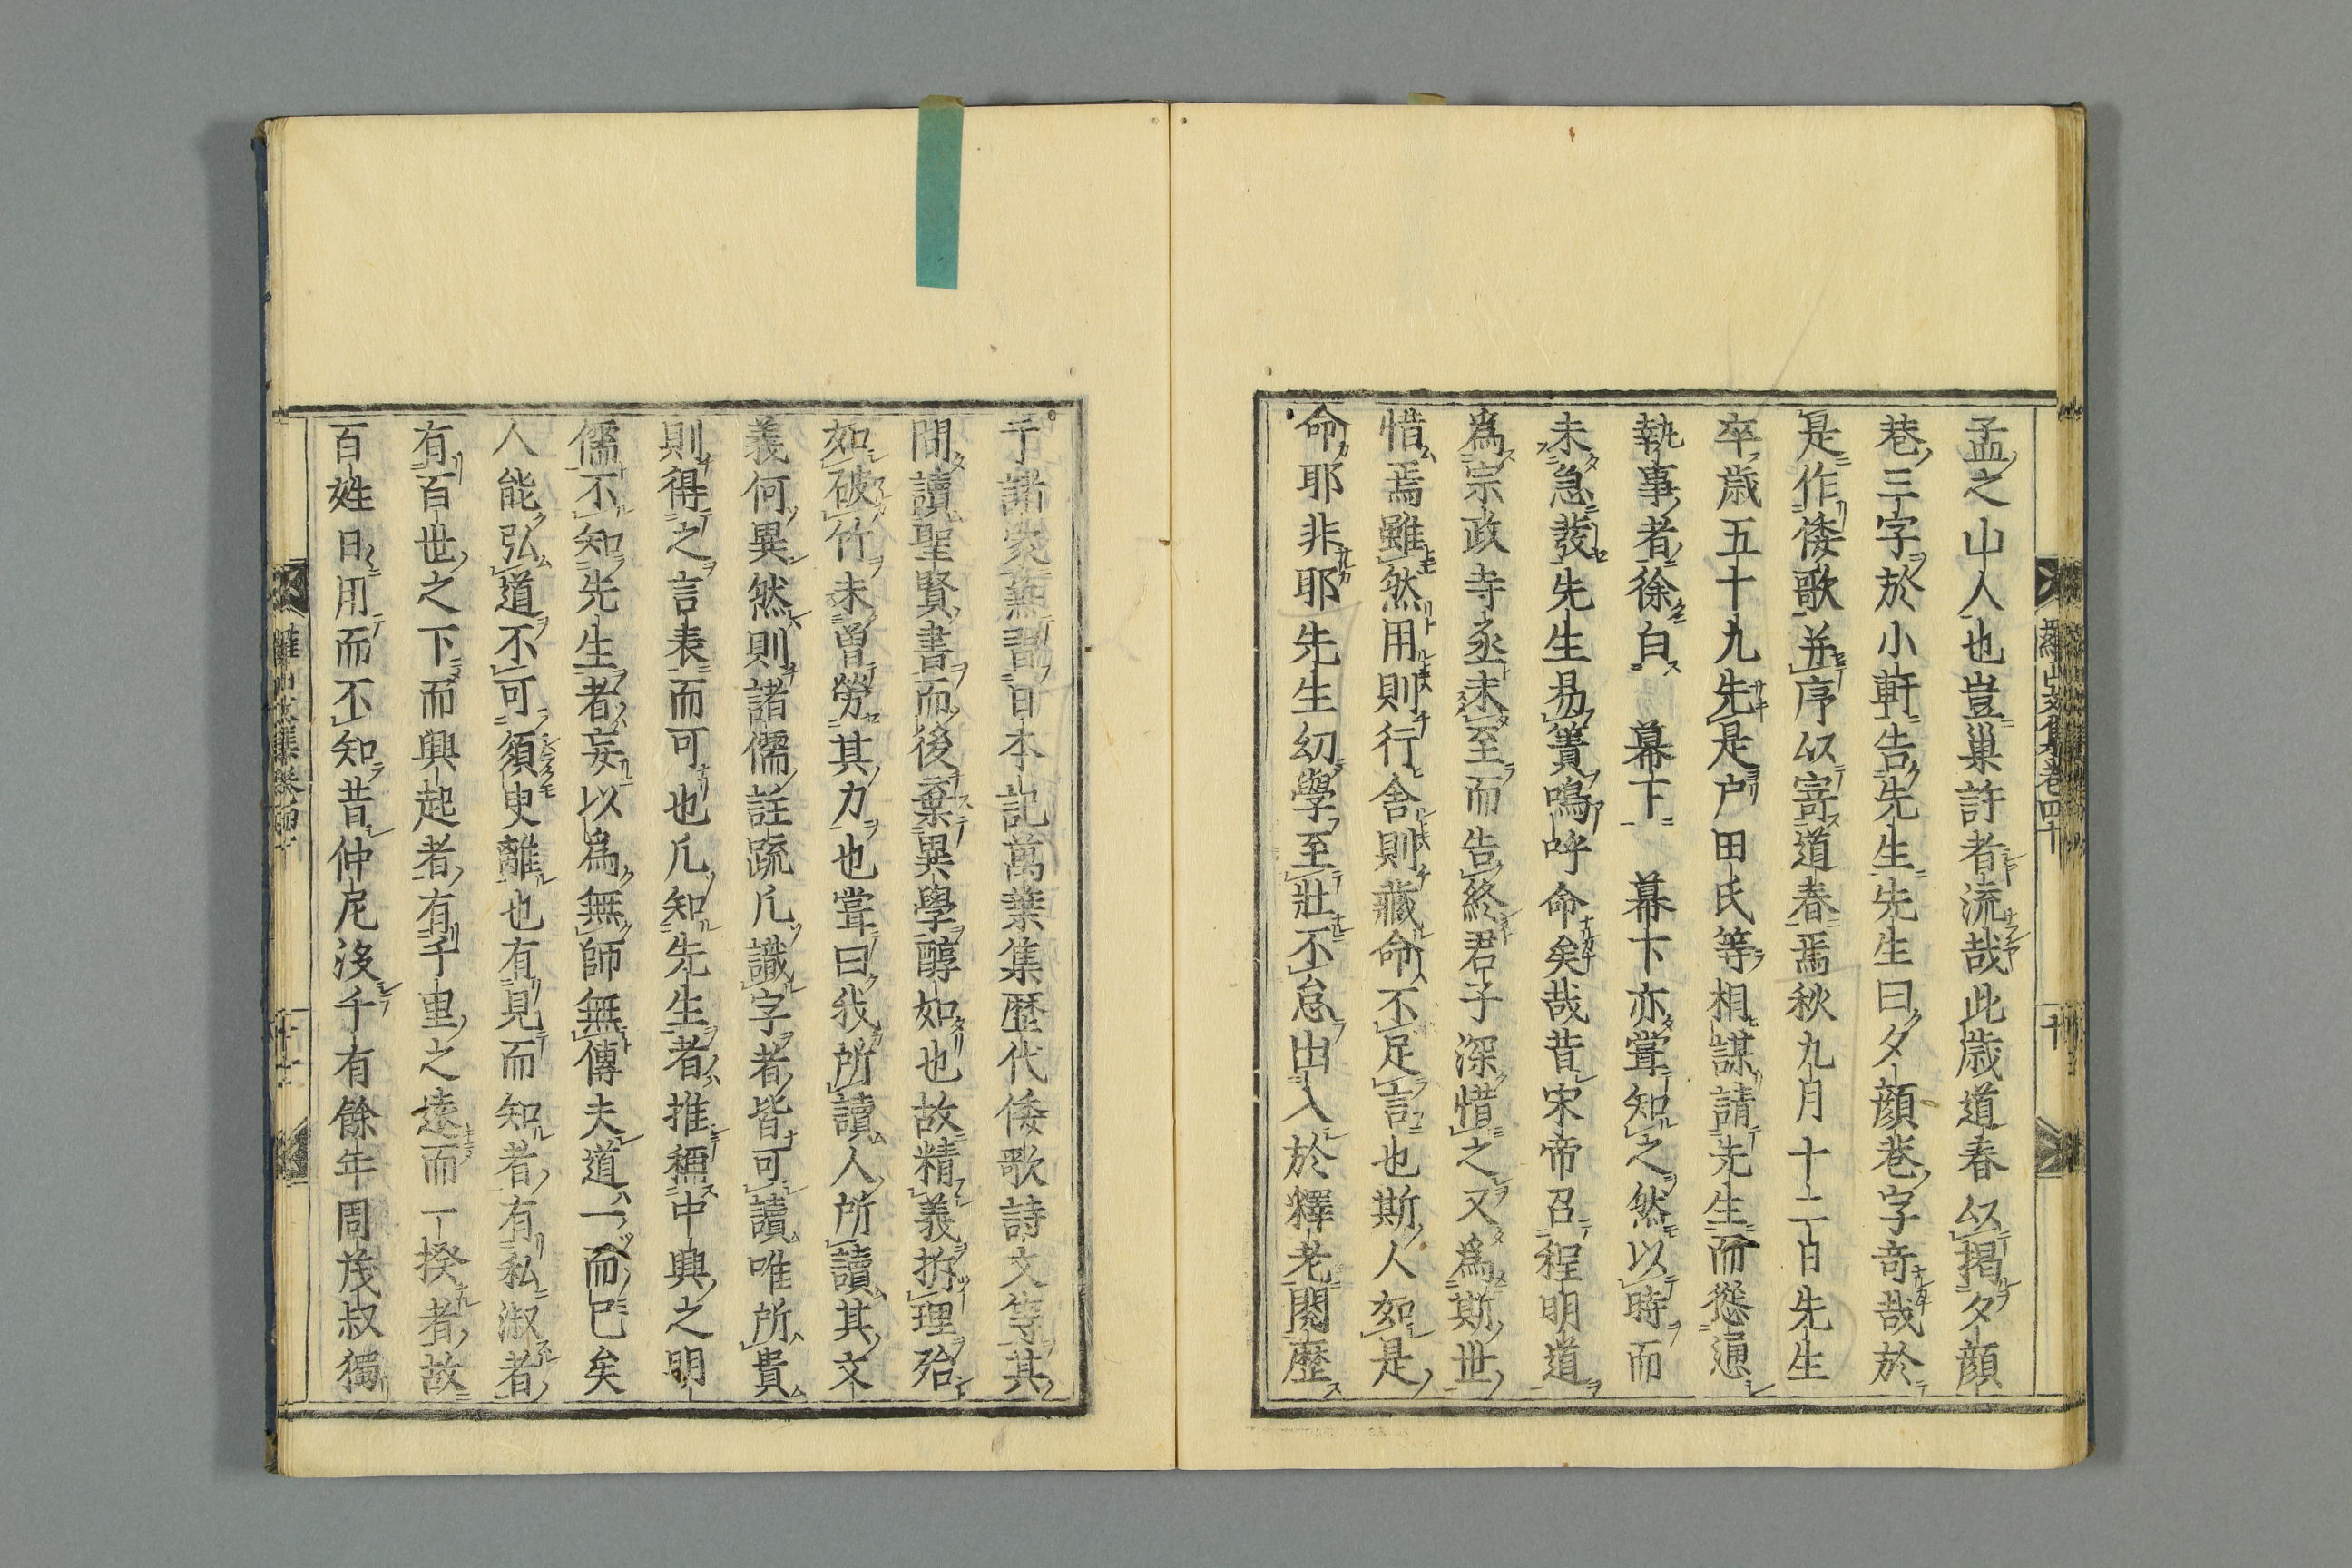 孟之山人也豈巢許者流哉此歳道春以揭夕顔
巷三字於小軒告先生先生曰夕顔巷字奇哉於
是作倭歌并序以寄道春焉秋九月十二日先生
卒歳五十九先是戸田氏等相謀請先生而慫通
執事者徐白　幕下　幕下亦嘗知之然以時而
未急發先生易簀嗚呼命矣哉昔宋帝召程明道
爲宗政寺丞未至而告終君子深惜之又爲斯世
惜焉雖然用則行舎則藏命不足言也斯人如是
命耶非耶先生幻學至壯不怠出入於釋老閲歴
羅山文集卷四十
十
于諸家無習日本記萬葉集歴代倭歌詩文等其
間讀聖賢書而後棄異學醇如也故精義拆理殆
如破竹未曽勞其力也嘗曰我所讀人所讀其文
義何異然則諸儒註疏凢識字者皆可讀唯所貴
則得之言表而可也凢知先生者推穪中興之明
儒不知先生者妄以爲無師無傳夫道一而已矣
人能弘道不可須臾離也有見而知者有私淑者
有百世之下而興起者有千里之遠而一揆者故
百姓日用而不知昔仲尼没千有餘年周茂叔獨
羅山文集卷四十
十一